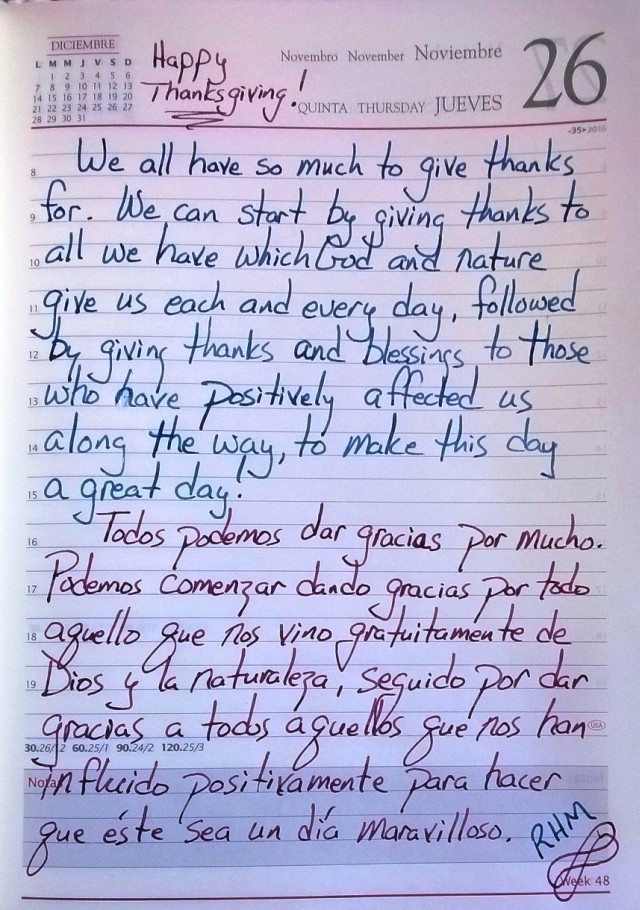 DICIEMBRE
L M M J V S D
1 2 3 4 5 6
7 8 9 10 11 12 13
14 15 16 17 18 19 20
21 22 23 24 25 26 27
28 29 30 31
Happy
Thanksgiving!
Novembro November Noviembre
QUINTA THURSDAY JUEVES
26
-35▸2016
8 We all have so much to give thanks
9 for. We can start by giving thanks to
10 all we have which God and nature
11 give us each and every day, followed
12 by giving thanks and blessings to those
13 who have positively affected us
14 along the way, to make this day
15 a great day!
16 Todos podemos dar gracias por mucho.
17 Podemos comenzar dando gracias por todo
18 aquello que nos vino gratuitamente de
19 Dios y la naturaleza, seguido por dar
gracias a todos aquellos que nos han USA
30.26/12 60.25/1 90.24/2 120.25/3
Nota influido positivamente para hacer
que éste sea un día maravilloso.
RHM
Week 48